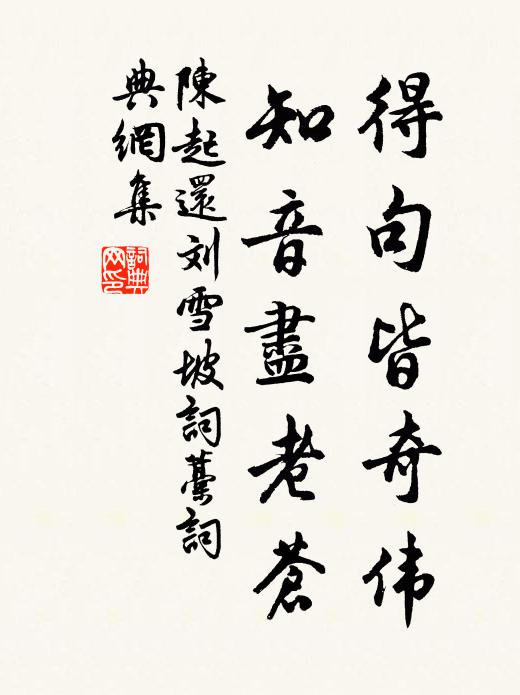 得句皆奇伟
知音盡老蒼
陳起還刘雪坡詞藁詞
典網集
詞典
网印